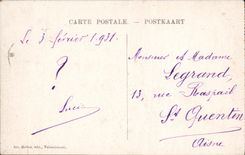 CARTE POSTALE. - POSTKAART
Le 3 février 1931.
?
Lucie
Monsieur et Madame
Legrand,
13, rue Raspail
St Quentin
Aisne